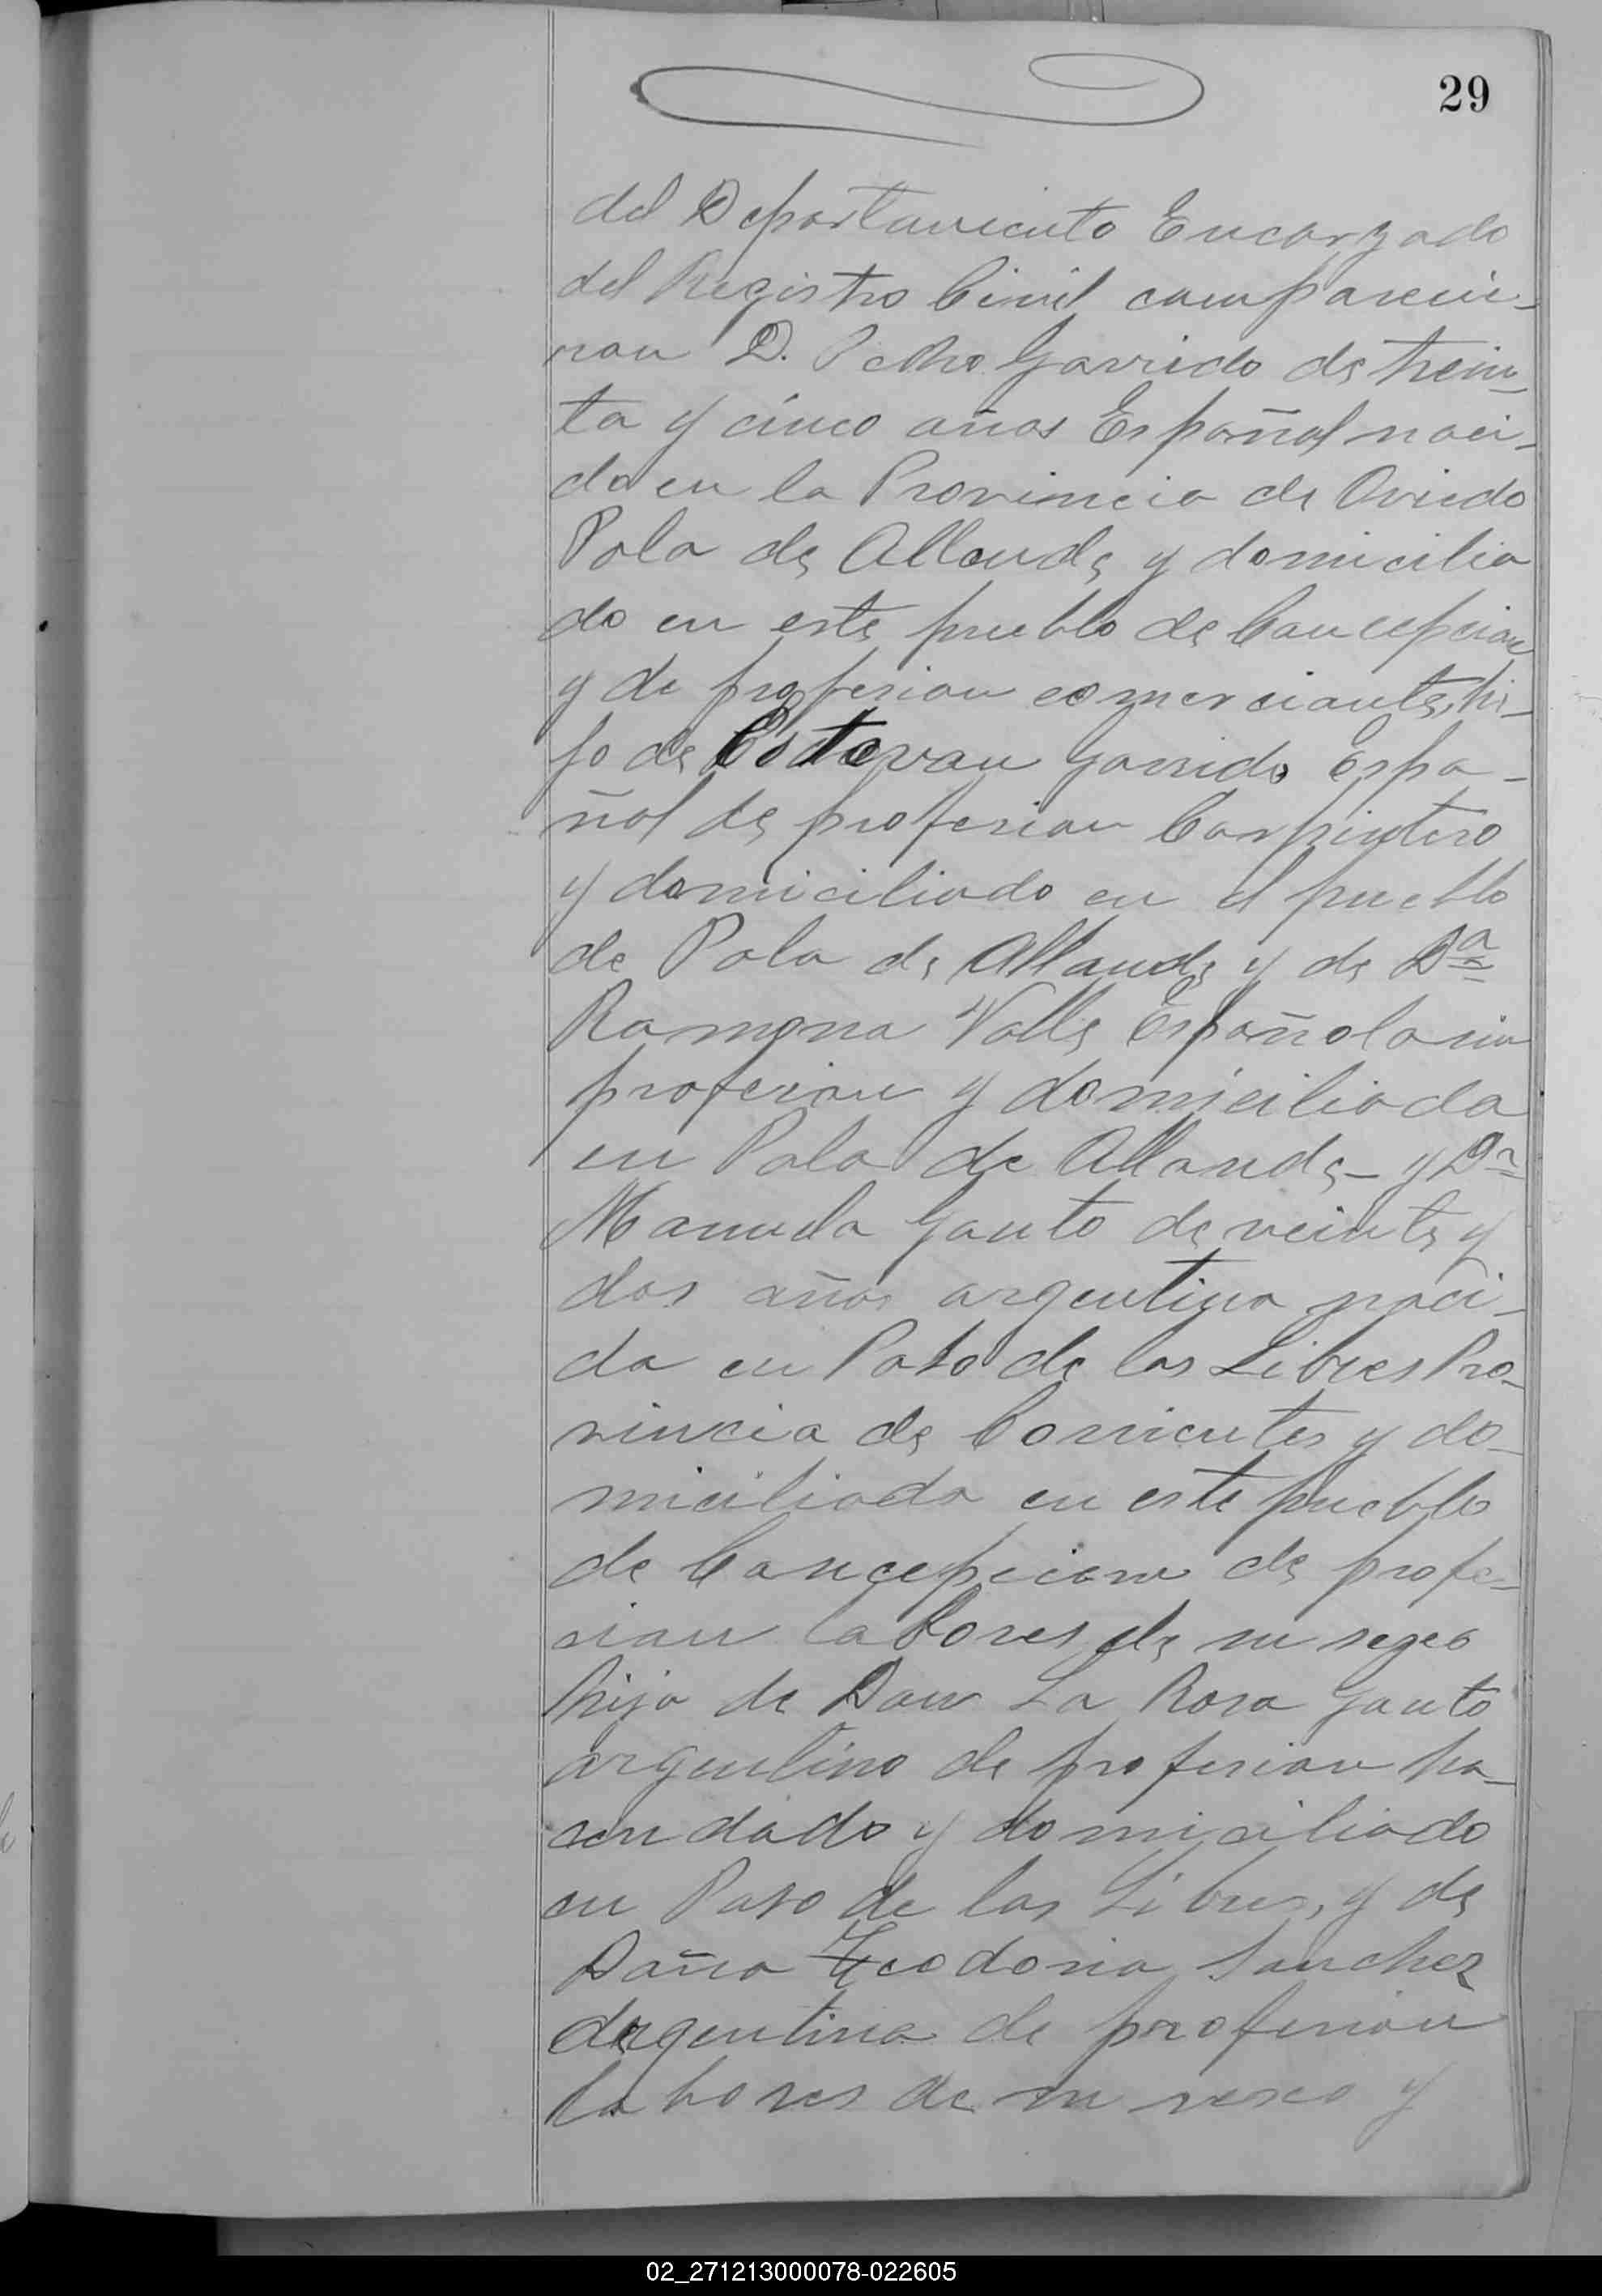 29
del Departamiento Encargado
del Registro Civil comparecie-
ron D. Pedro Garrido de trein-
ta y cinco años Español naci-
do en la Provincia de Oviedo
Pola de Allande y domicilia
do en este pueblo de Concepcion
y de profesion comerciante, hi-
jo de Estevan Garrido Espa-
ñol de profesion Carpintero
y domiciliado en el pueblo
de Pola de Allande y de Da
Ramona Valle Española sin
profesion y domiciliada
en Pola de Allande - y Da
Manuela Gauto de veinte y
dos años argentina naci-
da en Paso de los Libres Pro-
vincia de Corrientes y do-
miciliada en este pueblo
de Concepcion de profe-
sion labores de su sexo
hija de Don La Rosa Gauto
argentino de profesion ha-
cendado y domiciliado
en Paso de los Libres, y de
Doña Teodoria Sanchez
argentina de profesion
labores de su sexo y
02_271213000078-022605